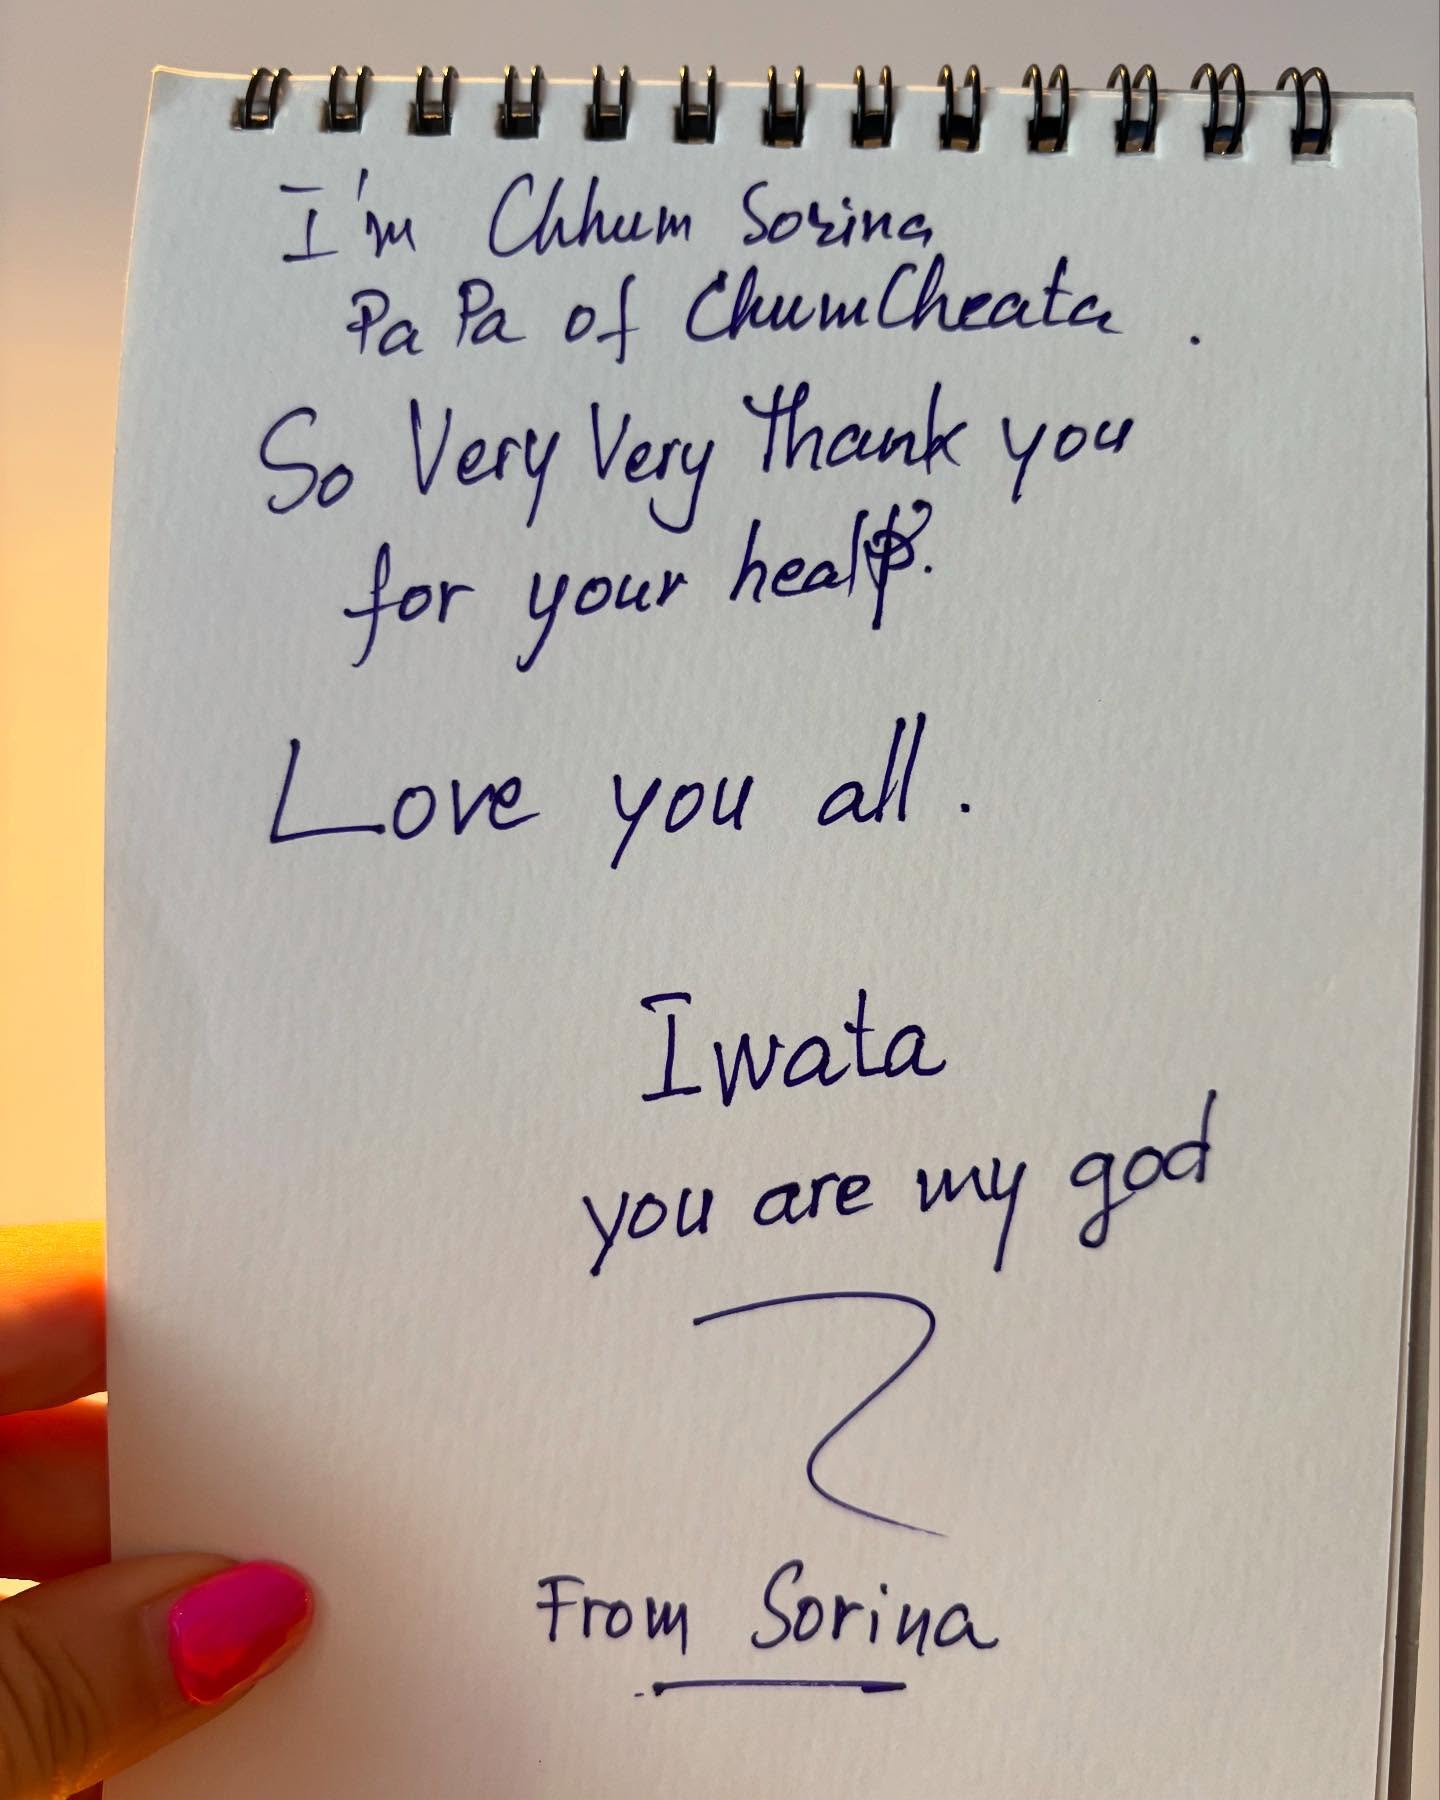 I'm Chhum Sorina
PaPa of ChumCheata .
So Very Very Thank you
for your healp.
Love you all .
Iwata
you are my god
From Sorina